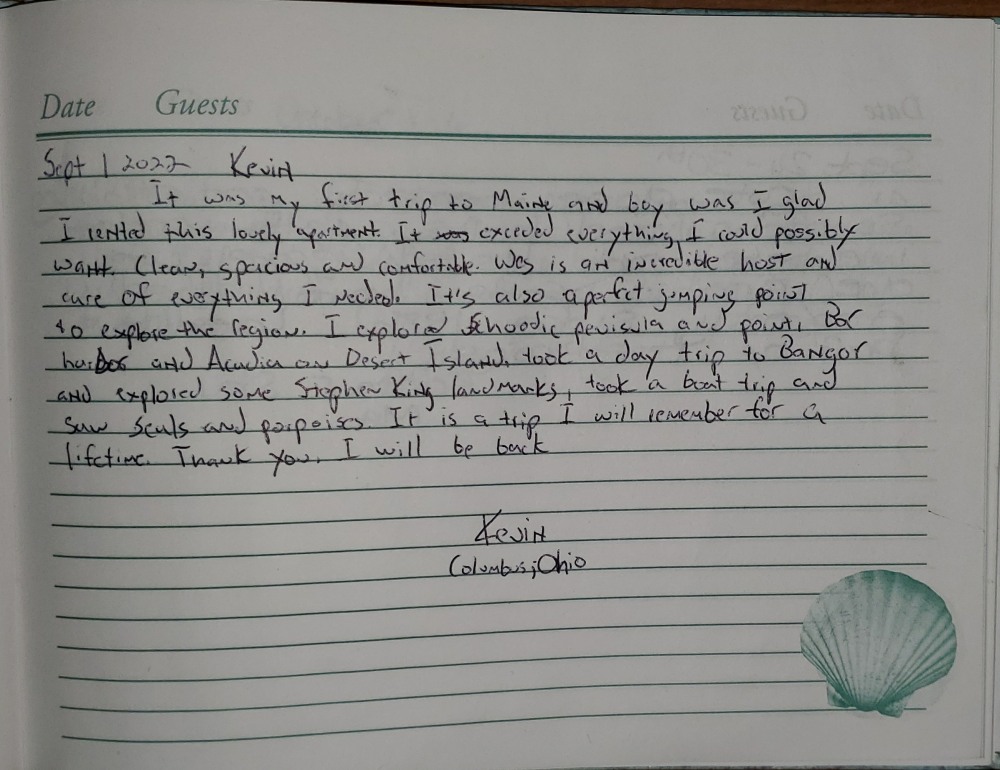 Date Guests
Sept 1 2022 Kevin
It was my first trip to Maine and boy was I glad
I rented this lovely apartment. It exceded everything I could possibly
want. Clean, spacious and comfortable. Wes is an incredible host and
cure of everything I needed. It's also a perfect jumping point
to explore the region. I explored Shoodic penisula and point, Bar
harbor and Acadia on Desert Island, took a day trip to Bangor
and explored some Stephen King landmarks, took a boat trip and
saw seals and porpoises. It is a trip I will remember for a
lifetime. Thank you, I will be back
Kevin
Columbus, Ohio